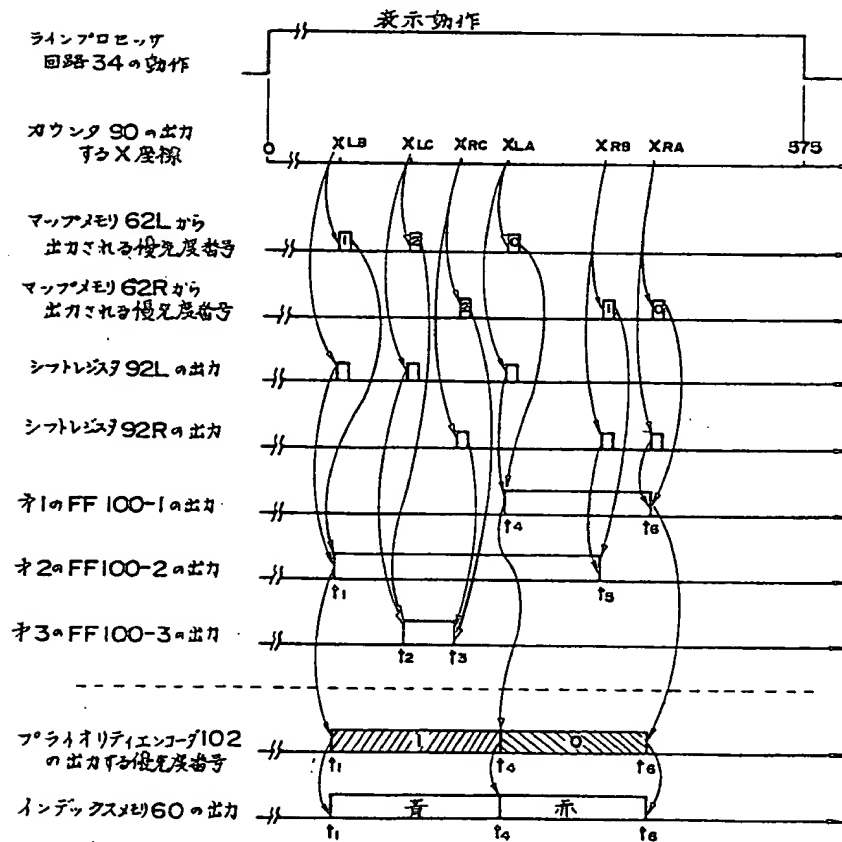 表示動作
ラインプロセッサ
回路34の動作
カウンタ90の出力
するX座標
0
XLB
XLC
XRC
XLA
XRB
XRA
575
マップメモリ62Lから
出力される優先度番号
1
2
0
マップメモリ62Rから
出力される優先度番号
2
1
0
シフトレジスタ92Lの出力
シフトレジスタ92Rの出力
才1のFF100-1の出力
t4
t6
才2のFF100-2の出力
t1
t5
才3のFF100-3の出力
t2
t3
プライオリティエンコーダ102
の出力する優先度番号
1
0
t1
t4
t6
インデックスメモリ60の出力
青
赤
t1
t4
t6